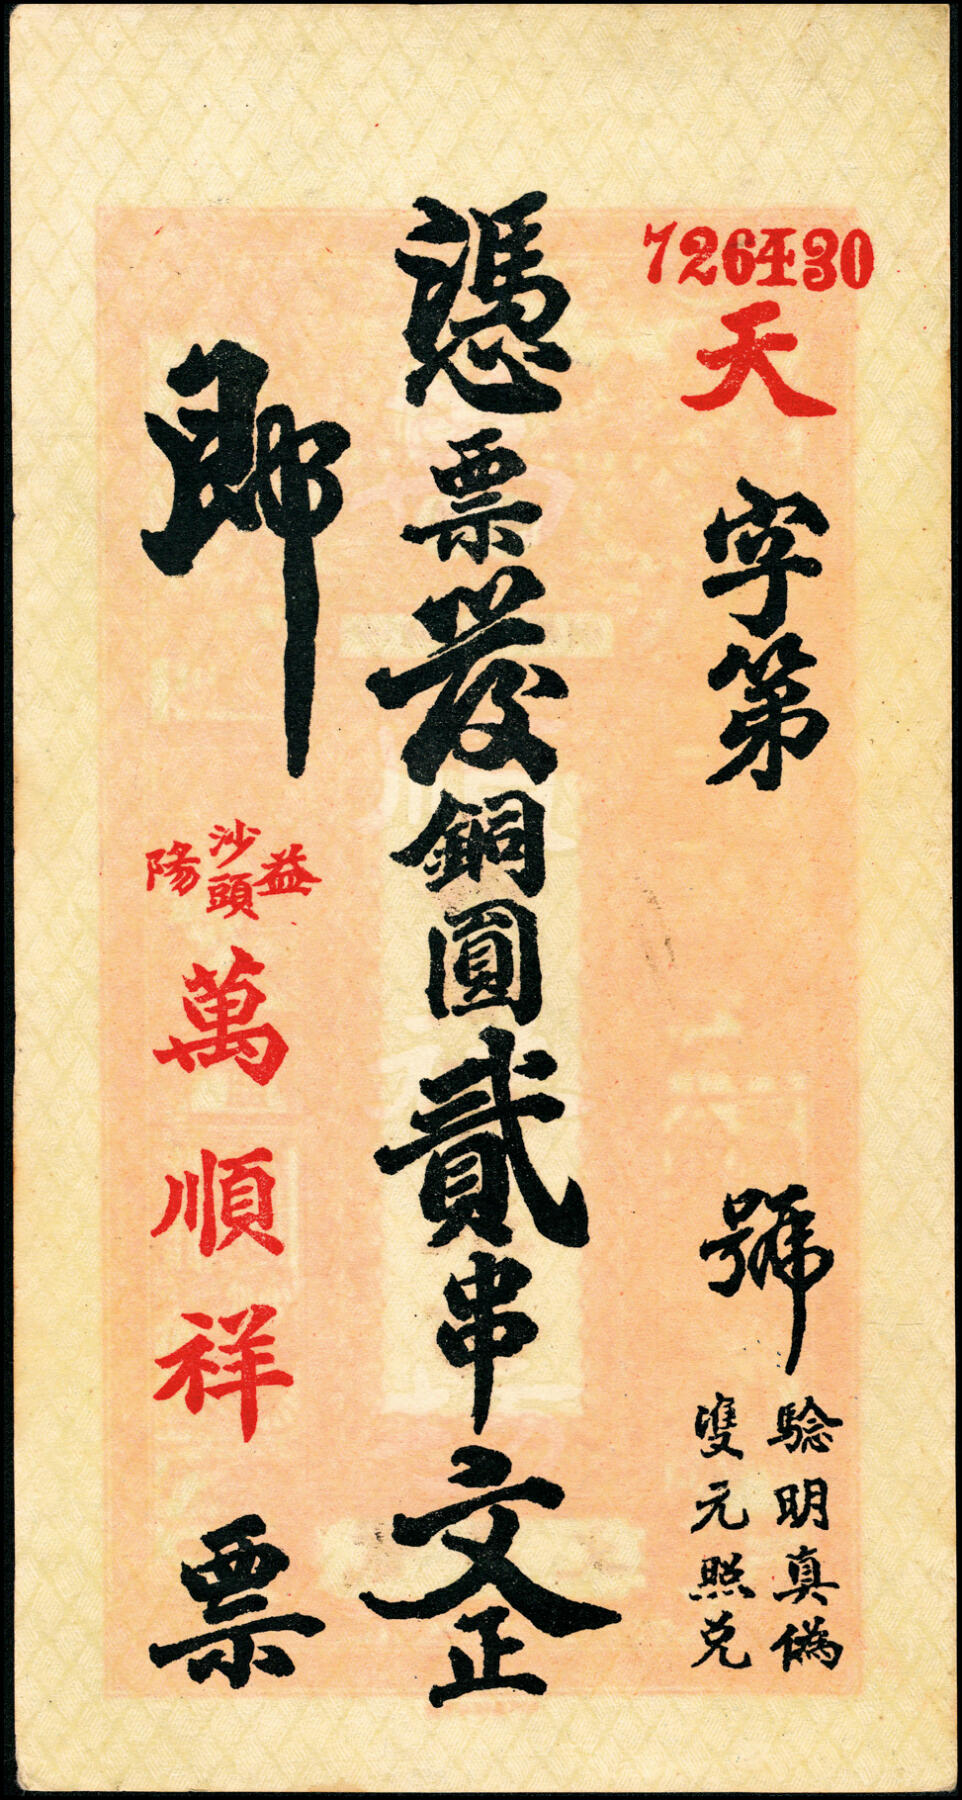 726430
天字第號
驗明真偽
雙元照兌
憑票發銅圓貳串文正
即
益陽
沙頭
萬順祥
票